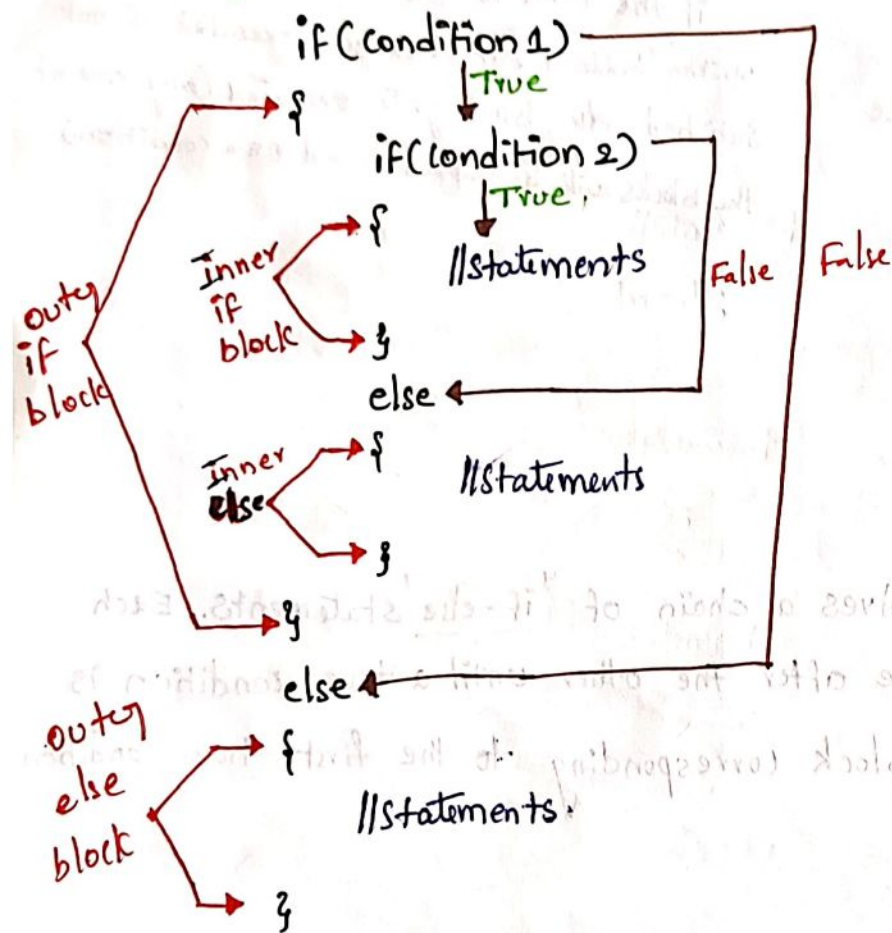 if(condition 1)
True
{
if(condition 2)
True
{
Inner
if
block
//statements
False
False
outer
if
block
}
else
{
Inner
else
//statements
}
}
else
outer
else
block
{
//statements.
}